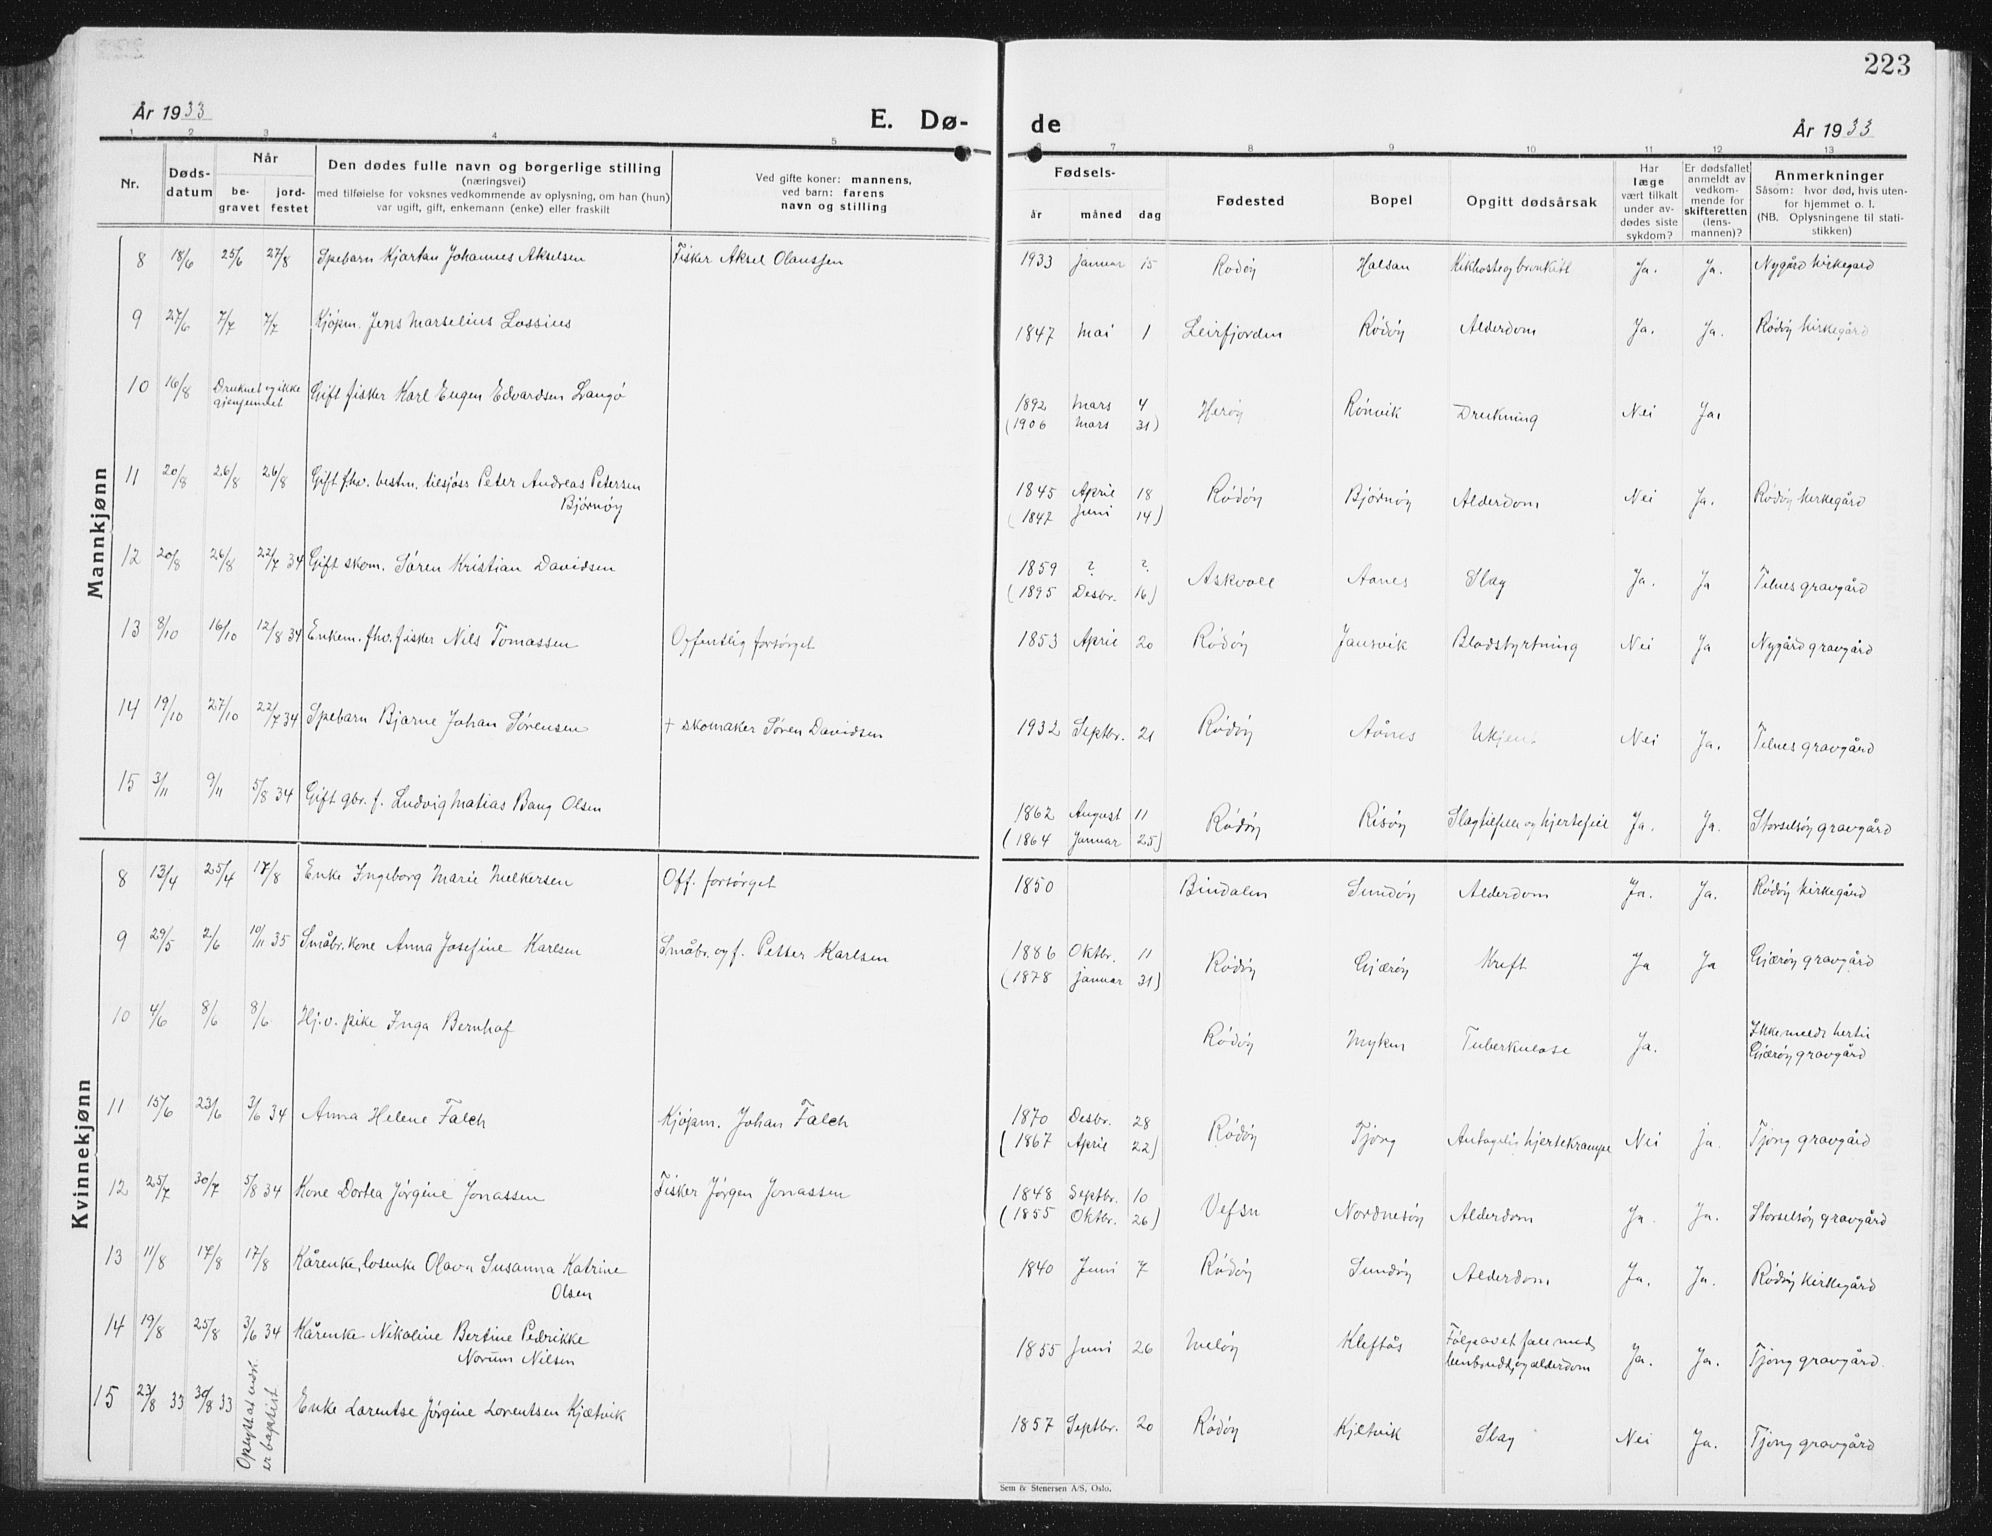 223
År 1933 E. Dø- de År 1933
1 2 3 4 5 6 7 8 9 10 11 12 13
Nr. Døds-datum Når be-gravet jord-festet Den dødes fulle navn og borgerlige stilling (næringsvei) med tilføielse for voksnes vedkommende av oplysning, om han (hun) var ugift, gift, enkemann (enke) eller fraskilt Ved gifte koner: mannens, ved barn: farens navn og stilling Fødsels- år måned dag Fødested Bopel Opgitt dødsårsak Har læge vært tilkalt under av-dødes siste sykdom? Er dødsfallet anmeldt av vedkom-mende for skifteretten (lens-mannen)? Anmerkninger Såsom: hvor død, hvis uten-for hjemmet o. l. (NB. Oplysningene til stati-stikken)
Mannkjønn
8 18/6 25/6 27/8 Spebarn Kjartan Johannes Akselsen Fisker Aksel Olaussen 1933 Januar 15 Rødøy Halsan Kikhoste og bronkitt Ja. Ja. Nygård kirkegard
9 27/6 7/7 7/7 Kjøpm. Jens Marselius Lossius 1847 Mai 1 Leirfjorden Rødøy Alderdom Ja. Ja. Rødøy kirkegård
10 16/8 Druknet og ikke gjenfunnet Gift fisker Karl Eugen Edvardsen Langø 1892 Mars 4 Herøy Rønvik Drukning Nei Ja.
(1906 Mars 31)
11 20/8 26/8 26/8 Gift fhv. bestm. tilsjøss Peter Andreas Petersen Bjørnøy 1845 April 18 Rødøy Bjørnøy Alderdom Nei Ja. Rødøy kirkegård
(1847 Juni 14)
12 20/8 26/8 22/7 34 Gift skom. Søren Kristian Davidsen 1859 ? ? Askvoll Aanes Slag Ja. Ja Telnes gravgård
(1895 Desbr. 16)
13 8/10 16/10 12/8 34 Enkem. fhv. fisker Nils Tomassen Offentlig forsørget 1853 April 20 Rødøy Jansvik Blodstyrtning Nei Ja Nygård gravgård
14 19/10 27/10 22/7 34 Spebarn Bjarne Johan Sørensen + skomaker Søren Davidsen 1932 Septbr. 21 Rødøy Aånes Ukjent Nei Ja. Telnes gravgård
15 3/11 9/11 5/8 34 Gift gbr. f. Ludvig Matias Bang Olsen 1862 August 11 Rødøy Risøy Slagtilfelle og hjertefeil Ja. Ja. Storselsøy gravgård
(1864 Januar 25)
Kvinnekjønn
8 13/4 25/4 17/8 Enke Ingeborg Marie Melkersen Off. forsørget 1850 Bindalen Sundøy Alderdom Ja. Ja. Rødøy kirkegård
9 29/5 2/6 10/11 35 Småbr. kone Anna Josefine Karlsen Småbr. og f. Petter Karlsen 1886 Oktbr. 11 Rødøy Gjærøy Kreft Ja Ja Gjærøy gravgård
(1878 Januar 31)
10 4/6 8/6 8/6 Hj.v. pike Inga Bernhof Rødøy Myken Tuberkulose Ja. Ikke meldt hertil Gjærøy gravgård
11 15/6 23/6 3/6 34 Anna Helene Falch Kjøpm. Johan Falch 1870 Desbr. 28 Rødøy Tjong Antagelig hjertekrampe Nei ja. Tjong gravgård
(1867 April 22)
12 25/7 30/7 5/8 34 Kone Dortea Jørgine Jonassen Fisker Jørgen Jonassen 1848 Septbr. 10 Vefsn Nordnesøy Alderdom Ja. Ja. Storselsøy gravgård
(1855 Oktbr. 26)
13 11/8 17/8 17/8 Kårenke, losenke Olava Susanna Katrine Olsen 1840 Juni 7 Rødøy Sundøy Alderdom Ja. Ja. Rødøy kirkegård
14 19/8 25/8 3/6 34 Kårenke Nikoline Bertine Pedrikke Norum Nilsen 1855 Juni 26 Meløy Kleftås Følge avet fall med benbrudd, og alderdom Ja. Ja. Tjong gravgård.
15 23/8 33 30/8 33 Oplyst at avdk. er baptist Enke Lorentse Jørgine Lorentsen Kjætvik 1857 Septbr. 20 Rødøy Kjeltvik Slag Nei Ja. Tjong gravgård
Sem & Stenersen A/S, Oslo.